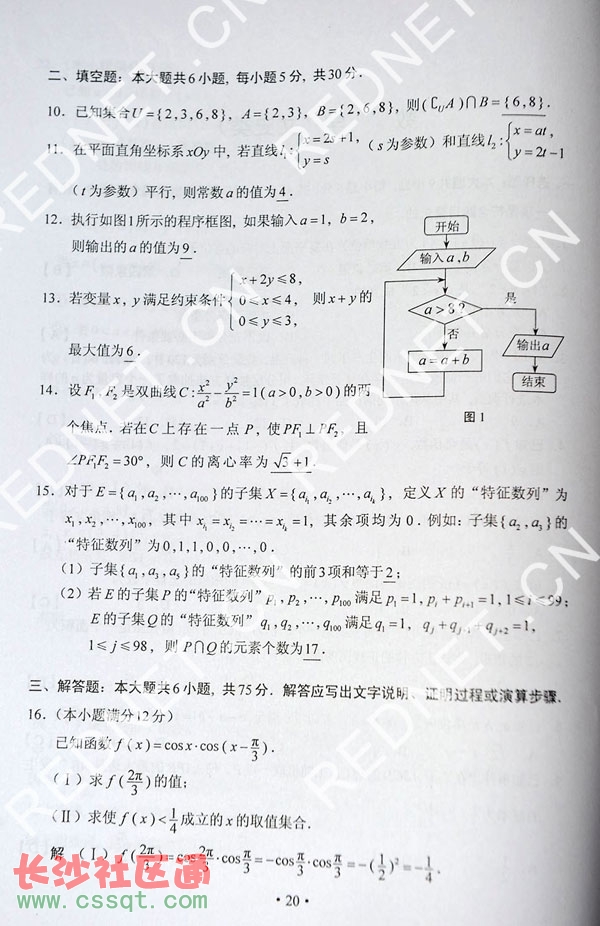 二、填空题：本大题共6小题，每小题5分，共30分．
10. 已知集合U={2,3,6,8}，A={2,3}，B={2,6,8}，则(∁UA)∩B={6,8}．
11. 在平面直角坐标系xOy中，若直线l₁:{x=2s+1, y=s (s为参数）和直线l₂:{x=at, y=2t-1
（t为参数）平行，则常数a的值为4．
12. 执行如图1所示的程序框图，如果输入a=1，b=2，
则输出的a的值为9．
开始
输入a,b
a>8?
是
否
a=a+b
输出a
结束
图1
13. 若变量x，y满足约束条件{x+2y≤8, 0≤x≤4, 0≤y≤3, 则x+y的
最大值为6．
14. 设F₁，F₂是双曲线C:x²/a²-y²/b²=1(a>0,b>0)的两
个焦点．若在C上存在一点P，使PF₁⊥PF₂，且
∠PF₁F₂=30°，则C的离心率为√3+1．
15. 对于E={a₁,a₂,⋯,a₁₀₀}的子集X={a_{i₁},a_{i₂},⋯,a_{i_k}}，定义X的“特征数列”为
x₁,x₂,⋯,x₁₀₀，其中x_{i₁}=x_{i₂}=⋯=x_{i_k}=1，其余项均为0．例如：子集{a₂,a₃}的
“特征数列”为0,1,1,0,0,⋯,0．
（1）子集{a₁,a₃,a₅}的“特征数列”的前3项和等于2；
（2）若E的子集P的“特征数列”p₁,p₂,⋯,p₁₀₀满足p₁=1,p_i+p_{i+1}=1,1≤i≤99；
E的子集Q的“特征数列”q₁,q₂,⋯,q₁₀₀满足q₁=1，q_j+q_{j+1}+q_{j+2}=1，
1≤j≤98，则P∩Q的元素个数为17．
三、解答题：本大题共6小题，共75分．解答应写出文字说明、证明过程或演算步骤．
16.（本小题满分12分）
已知函数f(x)=cosx·cos(x-π/3)．
（Ⅰ）求f(2π/3)的值；
（Ⅱ）求使f(x)<1/4成立的x的取值集合．
解（Ⅰ）f(2π/3)=cos2π/3·cosπ/3=-cosπ/3·cosπ/3=-(1/2)²=-1/4．
·20·
长沙社区通
www.cssqt.com
REDNET.CN
REDNET.CN
REDNET.CN
REDNET.CN